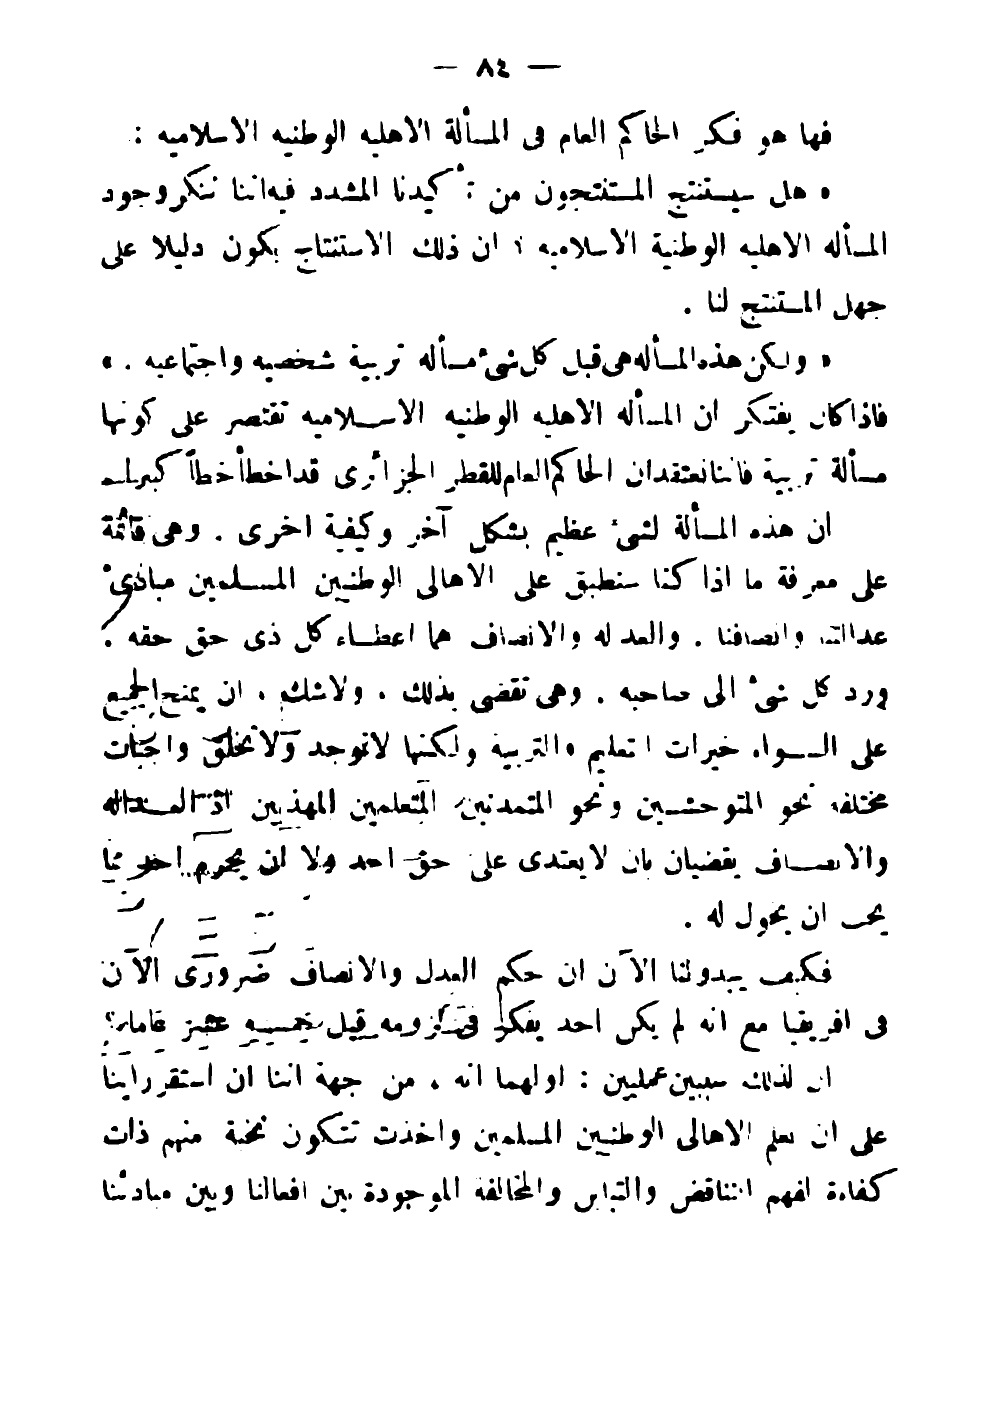 — ٨٤ —
فها هو فكر الحاكم العام فى المسألة الاهليه الوطنيه الاسلاميه :
« هل سيستنتج المستنتجون من تأكيدنا المشدد فيه اننا ننكر وجود
المسأله الاهليه الوطنية الاسلاميه ؟ ان ذلك الاستنتاج يكون دليلا على
جهل المستنتج لنا .
« ولكن هذه المسأله هى قبل كل شىء مسأله تربية شخصيه واجتماعيه . »
فاذا كان يفتكر ان المسأله الاهليه الوطنيه الاسلاميه تقتصر على كونها
مسألة تربية فاننا نعتقد ان الحاكم العام للقطر الجزائرى قد اخطأ خطأً كبيراً
ان هذه المسألة لشىء عظيم بشكل آخر وكيفية اخرى . وهى قائمة
على معرفة ما اذا كنا سنطبق على الاهالى الوطنيين المسلمين مبادىء
عدالتنا وانصافنا . والعدله والانصاف هما اعطاء كل ذى حق حقه .
ورد كل شىء الى صاحبه . وهى تقضى بذلك ، ولاشك ، ان يمنح الجميع
على السواء خيرات التعليم والتربية ولكنها لاتوجد ولا تخلق واجبات
مختلفه نحو المتوحشين ونحو المتمدنين المتعلمين المهذبين اذ العداله
والانصاف يقضيان بان لا يعتدى على حق احد ولا ان يحرم احد مما
يجب ان يخول له .
فكيف يبدو لنا الآن ان حكم العدل والانصاف ضرورى الآن
فى افريقيا مع انه لم يكن احد يفكر فى لزومه قبل خمسين عاما ؟
ان لذلك سببين عمليين : اولهما انه ، من جهة اننا ان استقر رأينا
على ان نعلم الاهالى الوطنيين المسلمين واخذت تتكون نخبة منهم ذات
كفاءة لفهم التناقض والتباين والمخالفة الموجودة بين افعالنا وبين مبادئنا